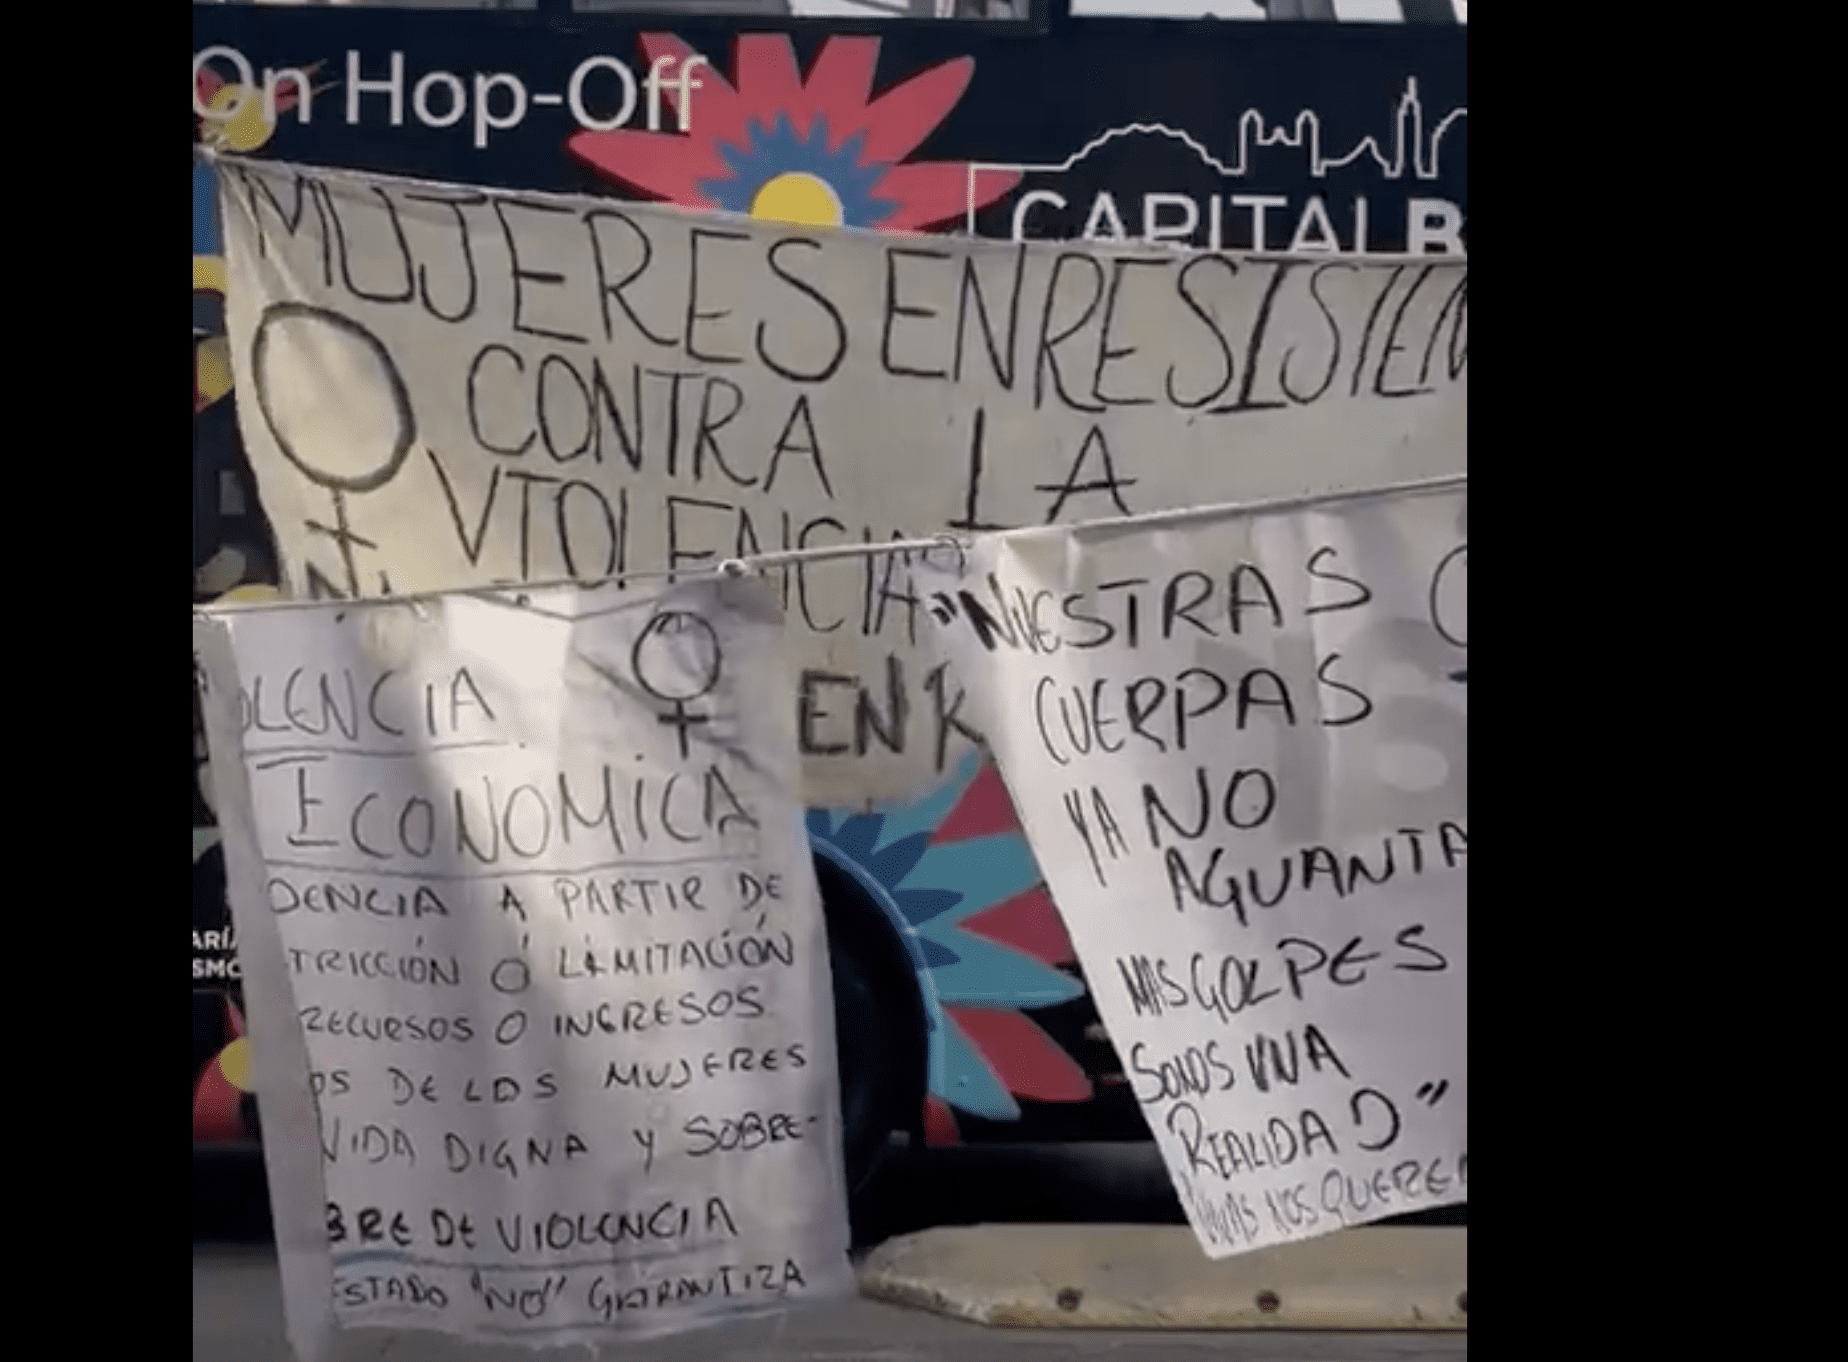 On Hop-Off
CAPITAL B
MUJERES EN RESISTEN
CONTRA LA
VIOLENCIA
EN
OLENCIA
ECONOMICA
DENCIA A PARTIR DE
TRICCIÓN Ó LIMITACIÓN
RECURSOS O INGRESOS
OS DE LOS MUJERES
VIDA DIGNA Y SOBRE-
BRE DE VIOLENCIA
ESTADO "NO" GARANTIZA
"NUESTRAS
CUERPAS
YA NO
AGUANTA
MAS GOLPES
SOMOS UNA
REALIDAD"
VIVAS NOS QUEREM
ARÍA
SMO